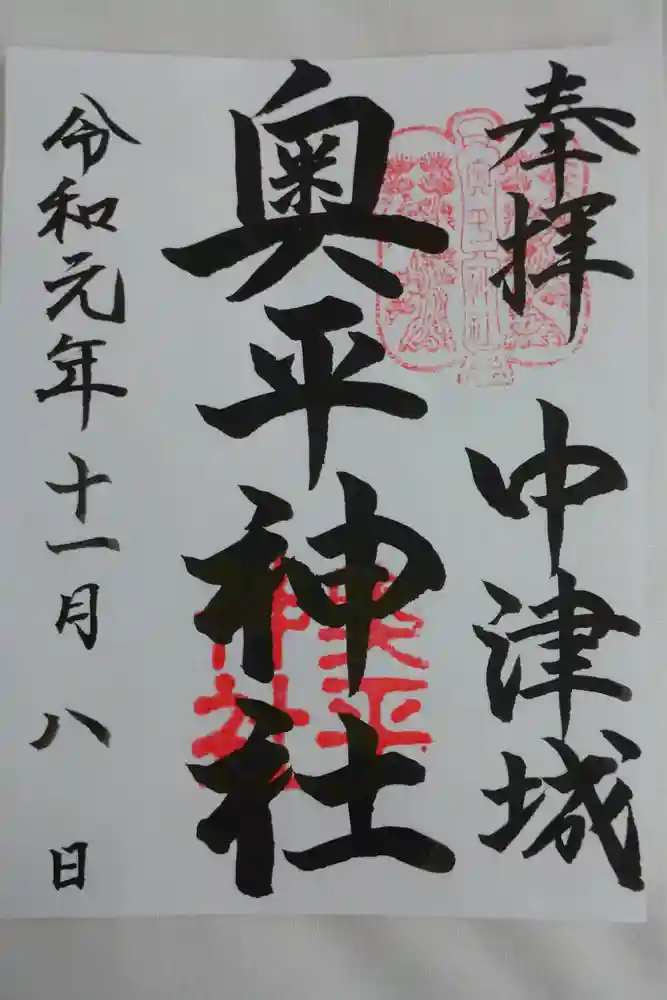 奉拝 中津城
奥平神社
令和元年十一月八日
奥平
神社